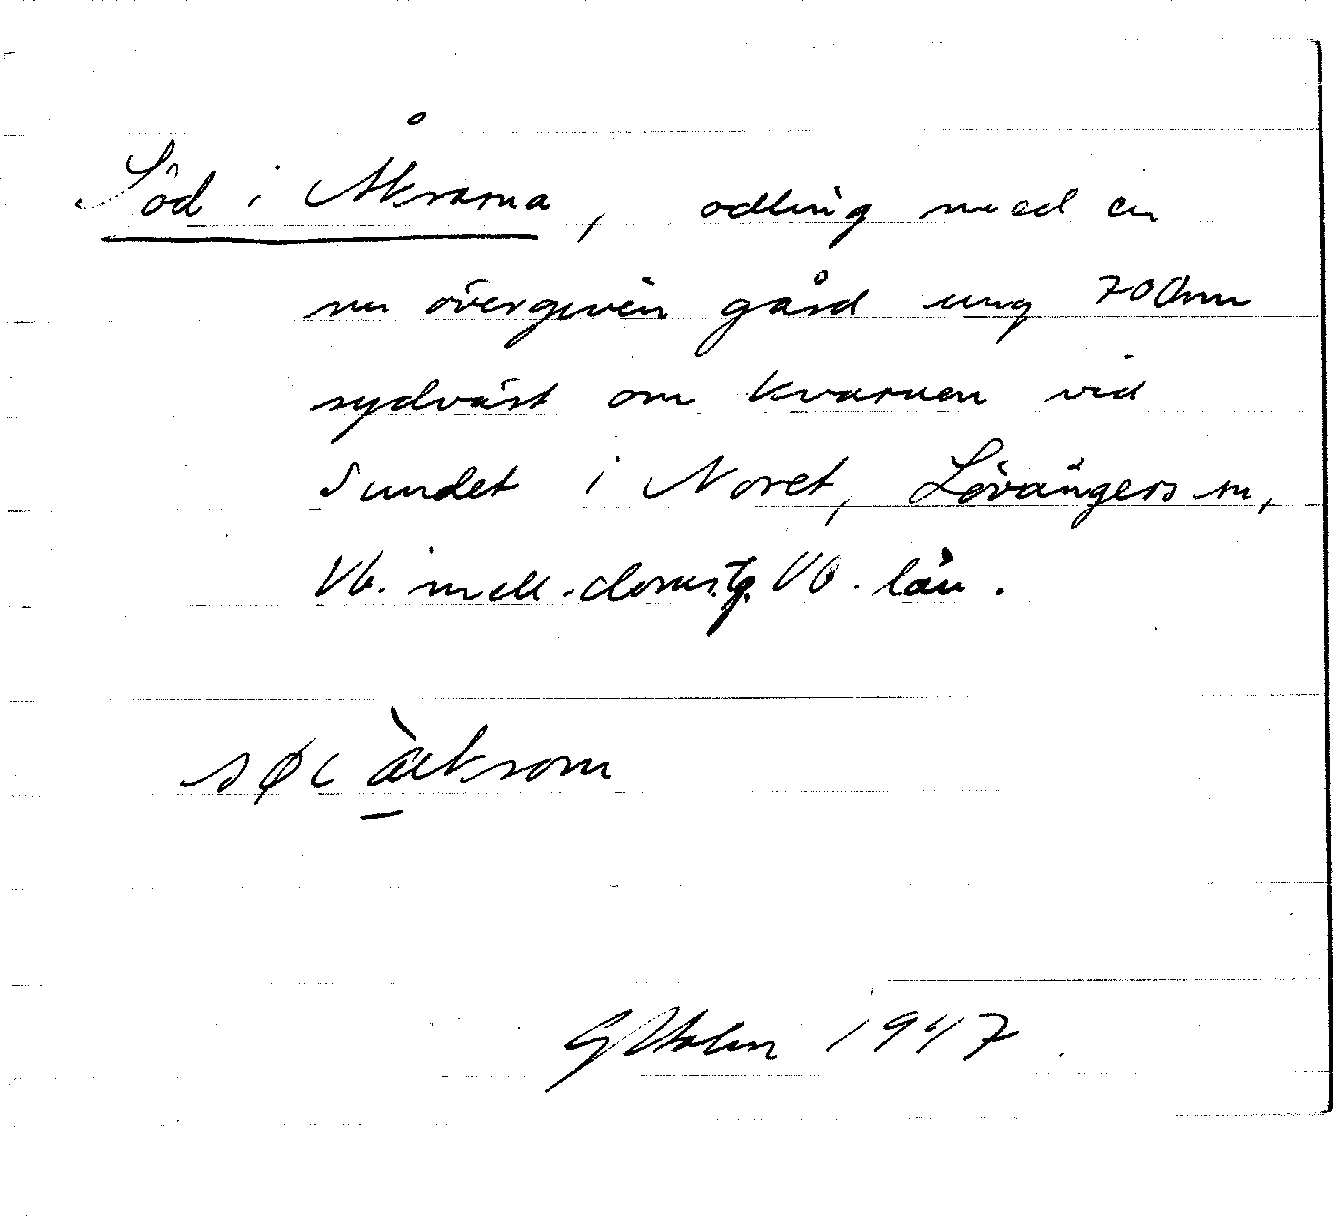 Söd i Åkrarna, odling med en
nu övergiven gård ung 700 m
sydväst om kvarnen vid
Sundet i Noret, Lövångers sn,
Vb. mell. doms.g. Vb. län.
søc
G Holm 1947